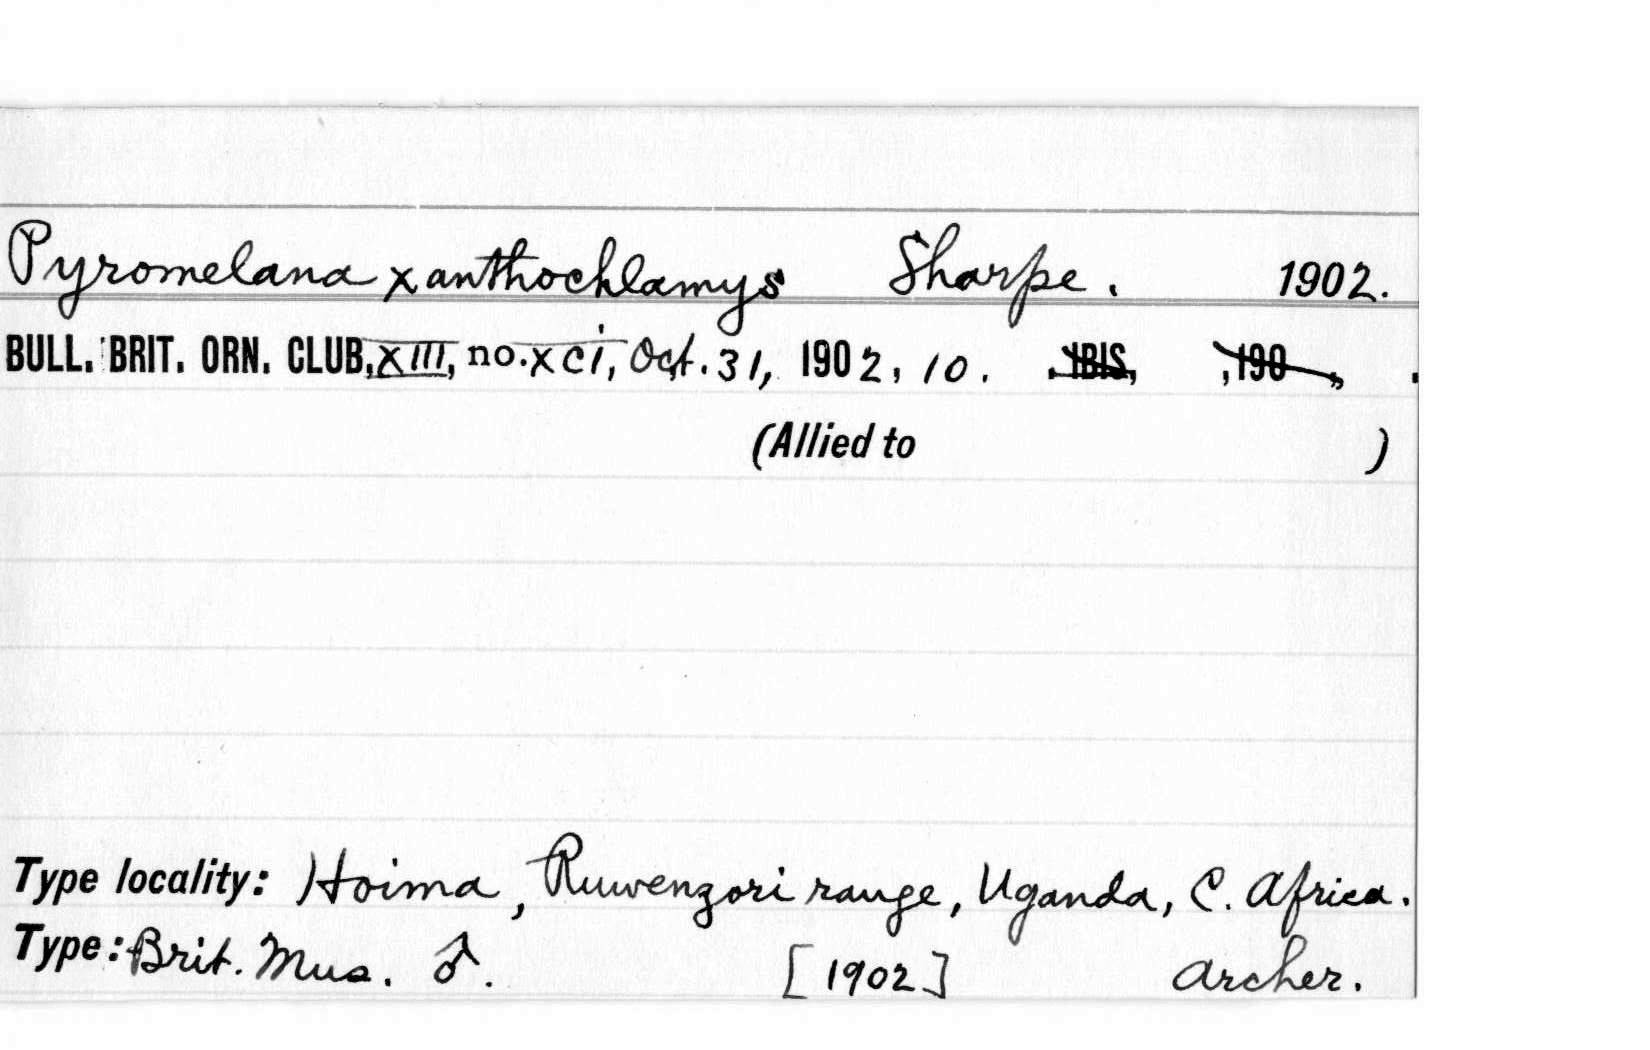 Pyromelana xanthochlamys Sharpe. 1902.
BULL. BRIT. ORN. CLUB, XIII, no. XCI, Oct. 31, 1902, 10. , IBIS, , 190 , .
(Allied to )
Type locality: Hoima, Ruwenzori range, Uganda, C. Africa.
Type: Brit. Mus. ♂. [1902] Archer.